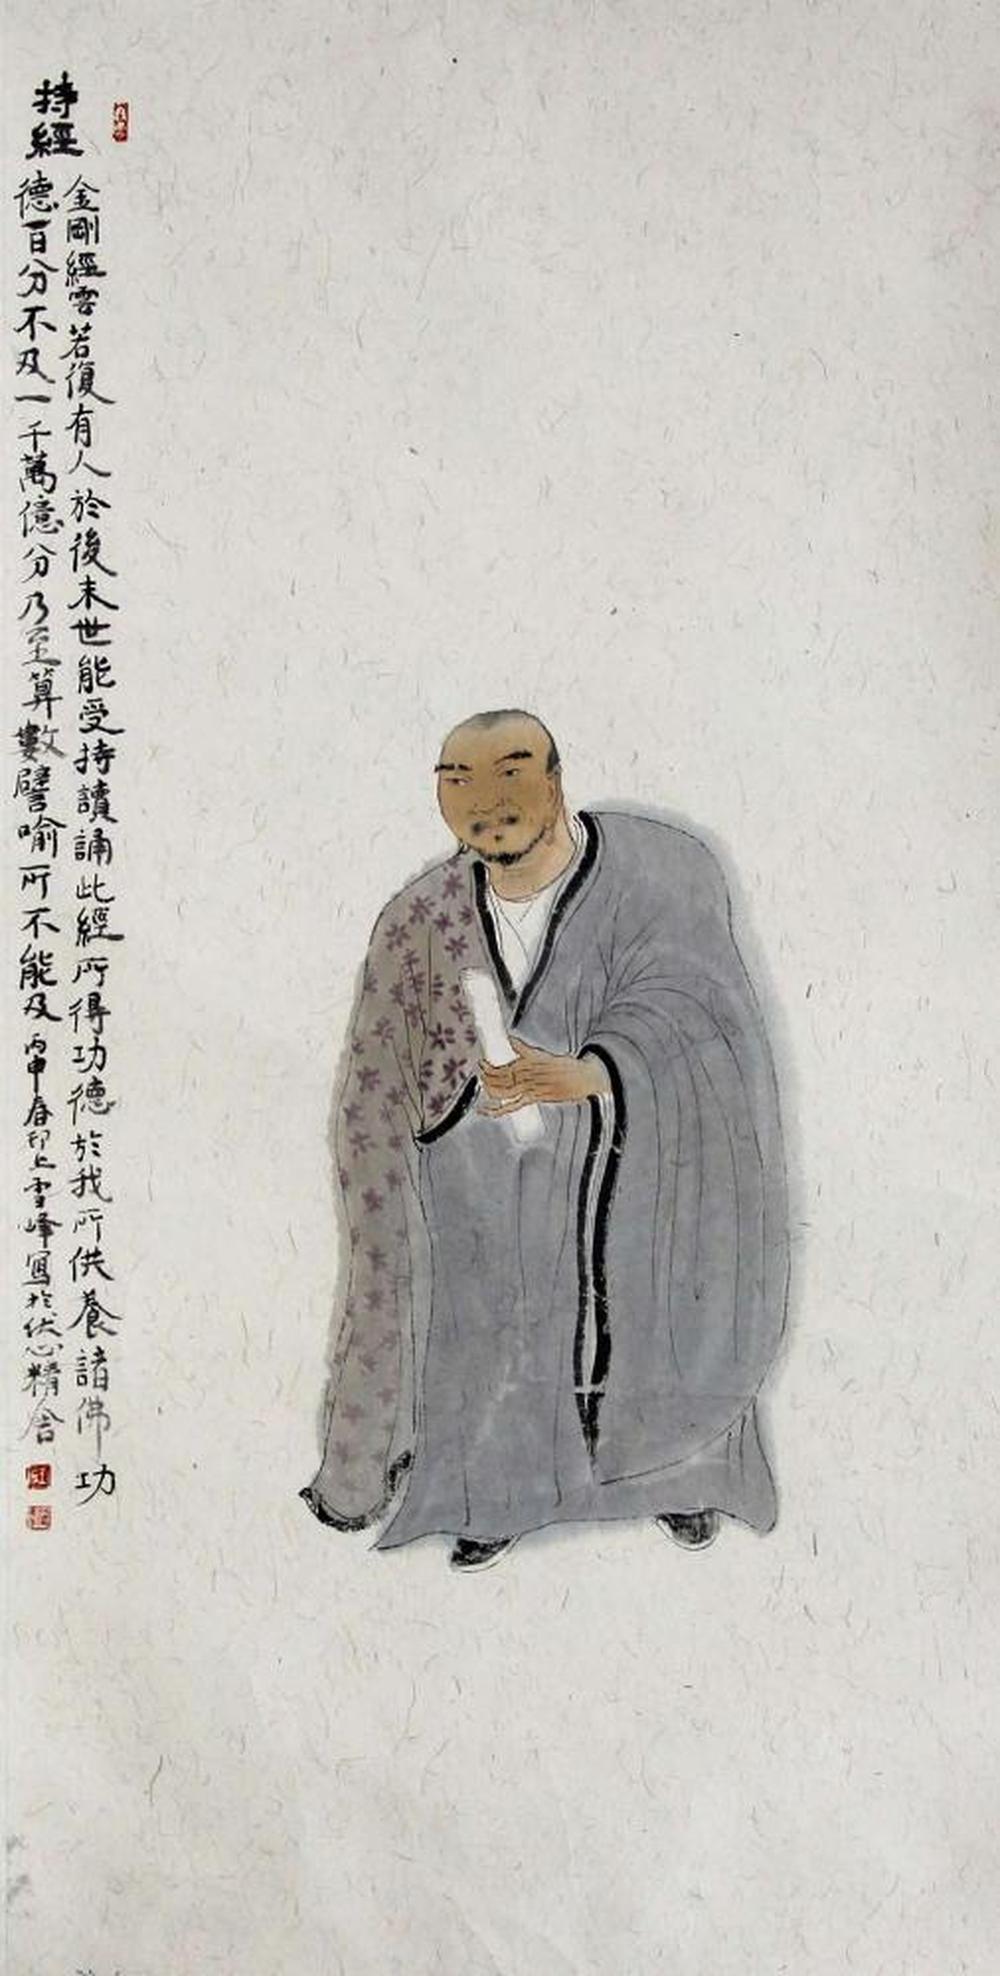 持經
金剛經雲若復有人於後末世能受持讀誦此經所得功德於我所供養諸佛功
德百分不及一千萬億分乃至算數譬喻所不能及丙申春印上雪峰寫於伏心精舍